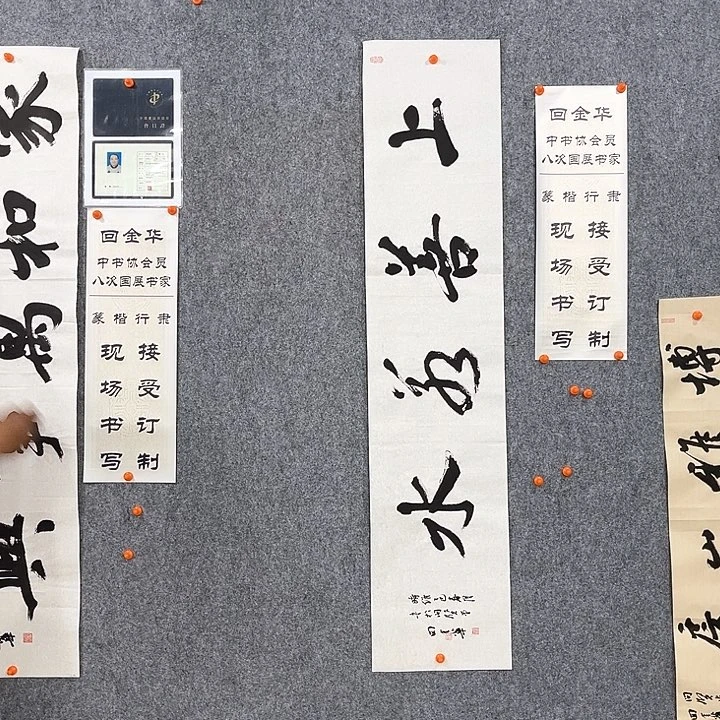 家
和
萬
事
興
会员证
回金华
中书协会员
八次国展书家
篆楷行隶
现接
场受
书订
写制
上
善
若
水
回金华
中书协会员
八次国展书家
篆楷行隶
现接
场受
书订
写制
博
雅
山
房